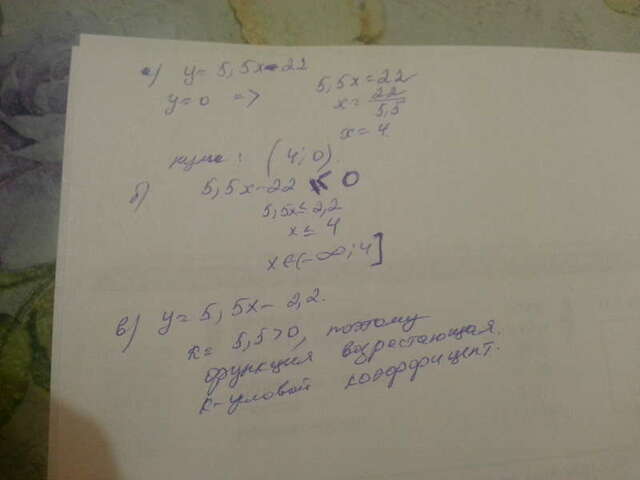 а) y = 5,5x - 22
y = 0 => 5,5x = 22
x = 22/5,5
x = 4
(4; 0).
б) 5,5x - 22 ≤ 0
5,5x ≤ 2,2
x ≤ 4
x ∈ (-∞; 4]
в) y = 5,5x - 2,2.
k = 5,5 > 0, поэтому
функция возрастающая.
k - угловой коэффициент.